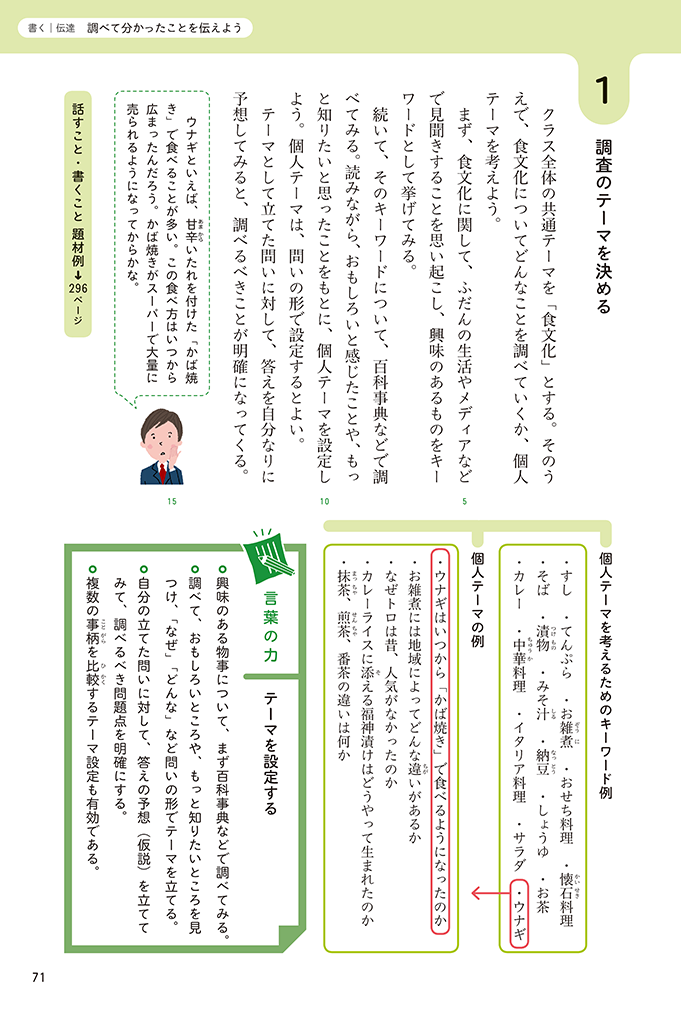 書く｜伝達 調べて分かったことを伝えよう
1
調査のテーマを決める
クラス全体の共通テーマを「食文化」とする。そのう
えで、食文化についてどんなことを調べていくか、個人
テーマを考えよう。
まず、食文化に関して、ふだんの生活やメディアなど
で見聞きすることを思い起こし、興味のあるものをキー
ワードとして挙げてみる。
続いて、そのキーワードについて、百科事典などで調
べてみる。読みながら、おもしろいと感じたことや、もっ
と知りたいと思ったことをもとに、個人テーマを設定し
よう。個人テーマは、問いの形で設定するとよい。
テーマとして立てた問いに対して、答えを自分なりに
予想してみると、調べるべきことが明確になってくる。
5
10
15
ウナギといえば、甘辛いたれを付けた「かば焼
あま から
き」で食べることが多い。この食べ方はいつから
広まったんだろう。かば焼きがスーパーで大量に
売られるようになってからかな。
話すこと・書くこと 題材例➡296ページ
個人テーマを考えるためのキーワード例
・すし ・てんぷら ・お雑煮 ・おせち料理 ・懐石料理
ぞう に かい せき
・そば ・漬物 ・みそ汁 ・納豆 ・しょうゆ ・お茶
つけ もの しる なっ とう
・カレー ・中華料理 ・イタリア料理 ・サラダ ・ウナギ
ちゅう か
個人テーマの例
・ウナギはいつから「かば焼き」で食べるようになったのか
・お雑煮には地域によってどんな違いがあるか
ちが
・なぜトロは昔、人気がなかったのか
・カレーライスに添える福神漬けはどうやって生まれたのか
そ
・抹茶、煎茶、番茶の違いは何か
まっ ちゃ せん ちゃ
言葉の力
テーマを設定する
興味のある物事について、まず百科事典などで調べてみる。
調べて、おもしろいところや、もっと知りたいところを見
つけ、「なぜ」「どんな」など問いの形でテーマを立てる。
自分の立てた問いに対して、答えの予想（仮説）を立てて
みて、調べるべき問題点を明確にする。
複数の事柄を比較するテーマ設定も有効である。
こと がら ひ かく
71